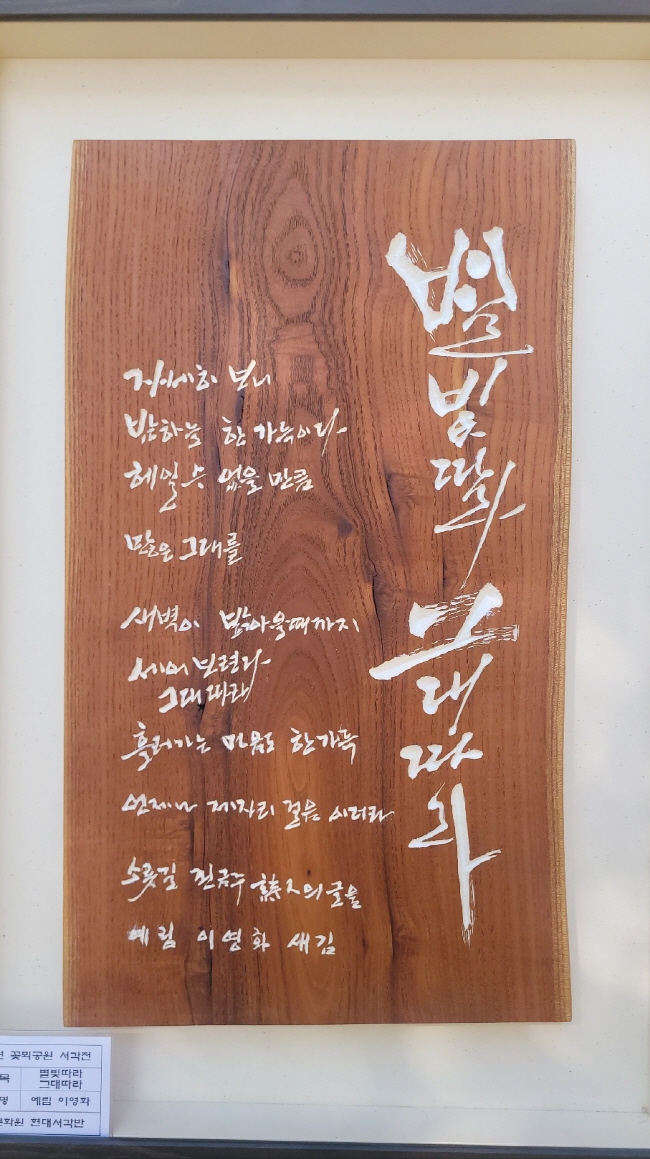 별빛따라
그대따라
자세히 보니
밤하늘 한 가득이다
헤일 수 없을 만큼
많은 그대를
새벽이 밝아올때까지
세어 보련다
그대따라
흘러가는 마음도 한가득
언제나 제자리 걸음 이더라
진금주 詩人의 글을
예림 이영화 새김
꽃뫼공원 서각전
별빛따라
그대따라
예림 이영화
현대서각반